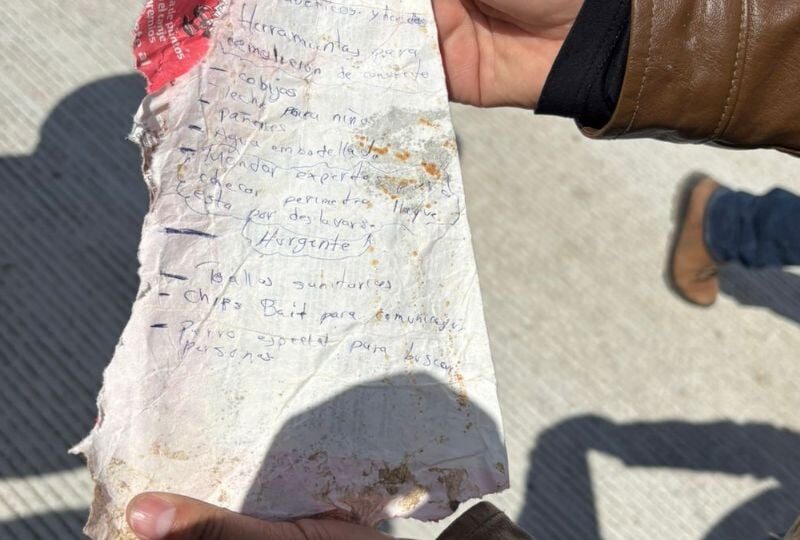 da de puntos
el canje
remos
al
Herramientas para
demolición de concreto
- cobijas
- leche para niños
- pañales
- Agua embotellada
- Mandar experto
checar perimetro
Esta por deslavarse
¡Hurgente!
- Toallas sanitarias
- Chips Bait para comunicarnos
- Perro especial para buscar
personas